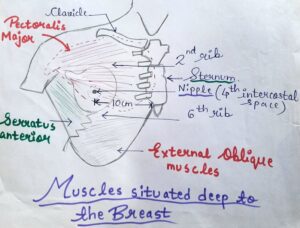 Clavicle
Pectoralis
Major
2nd rib
Sternum
Nipple (4th intercostal
space)
10cm
6th rib
Serratus
anterior
External Oblique
muscles
Muscles situated deep to
the Breast